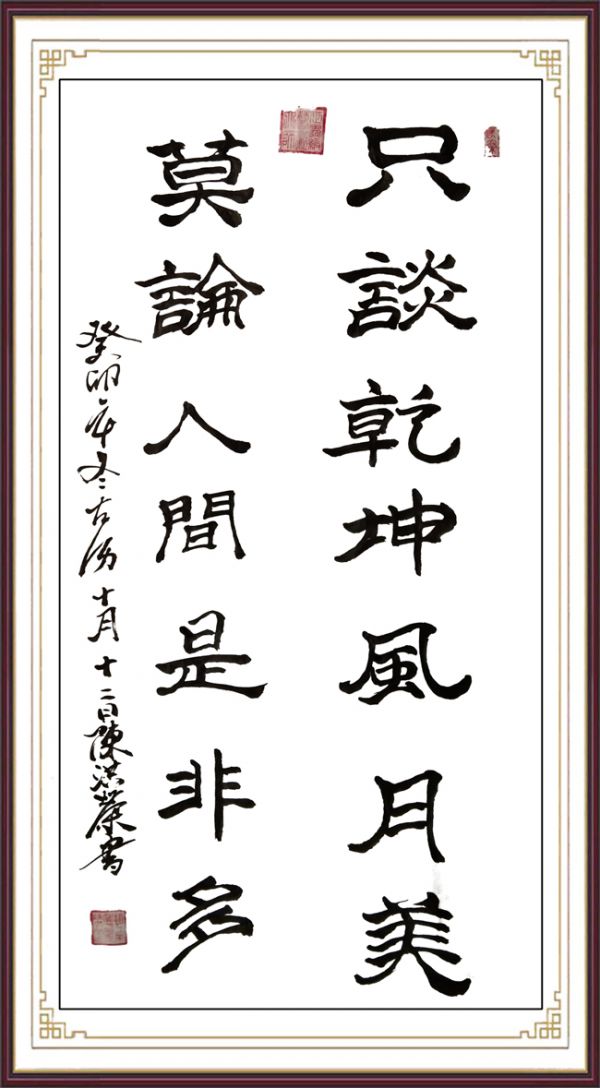 只談乾坤風月美
莫論人間是非多
癸卯年冬古历十月十二日陳洪榮書